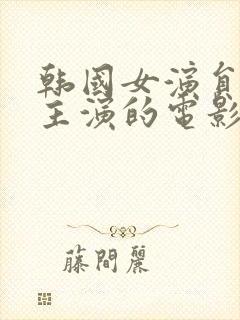 韩國女演員
主演的電影
藤間麗